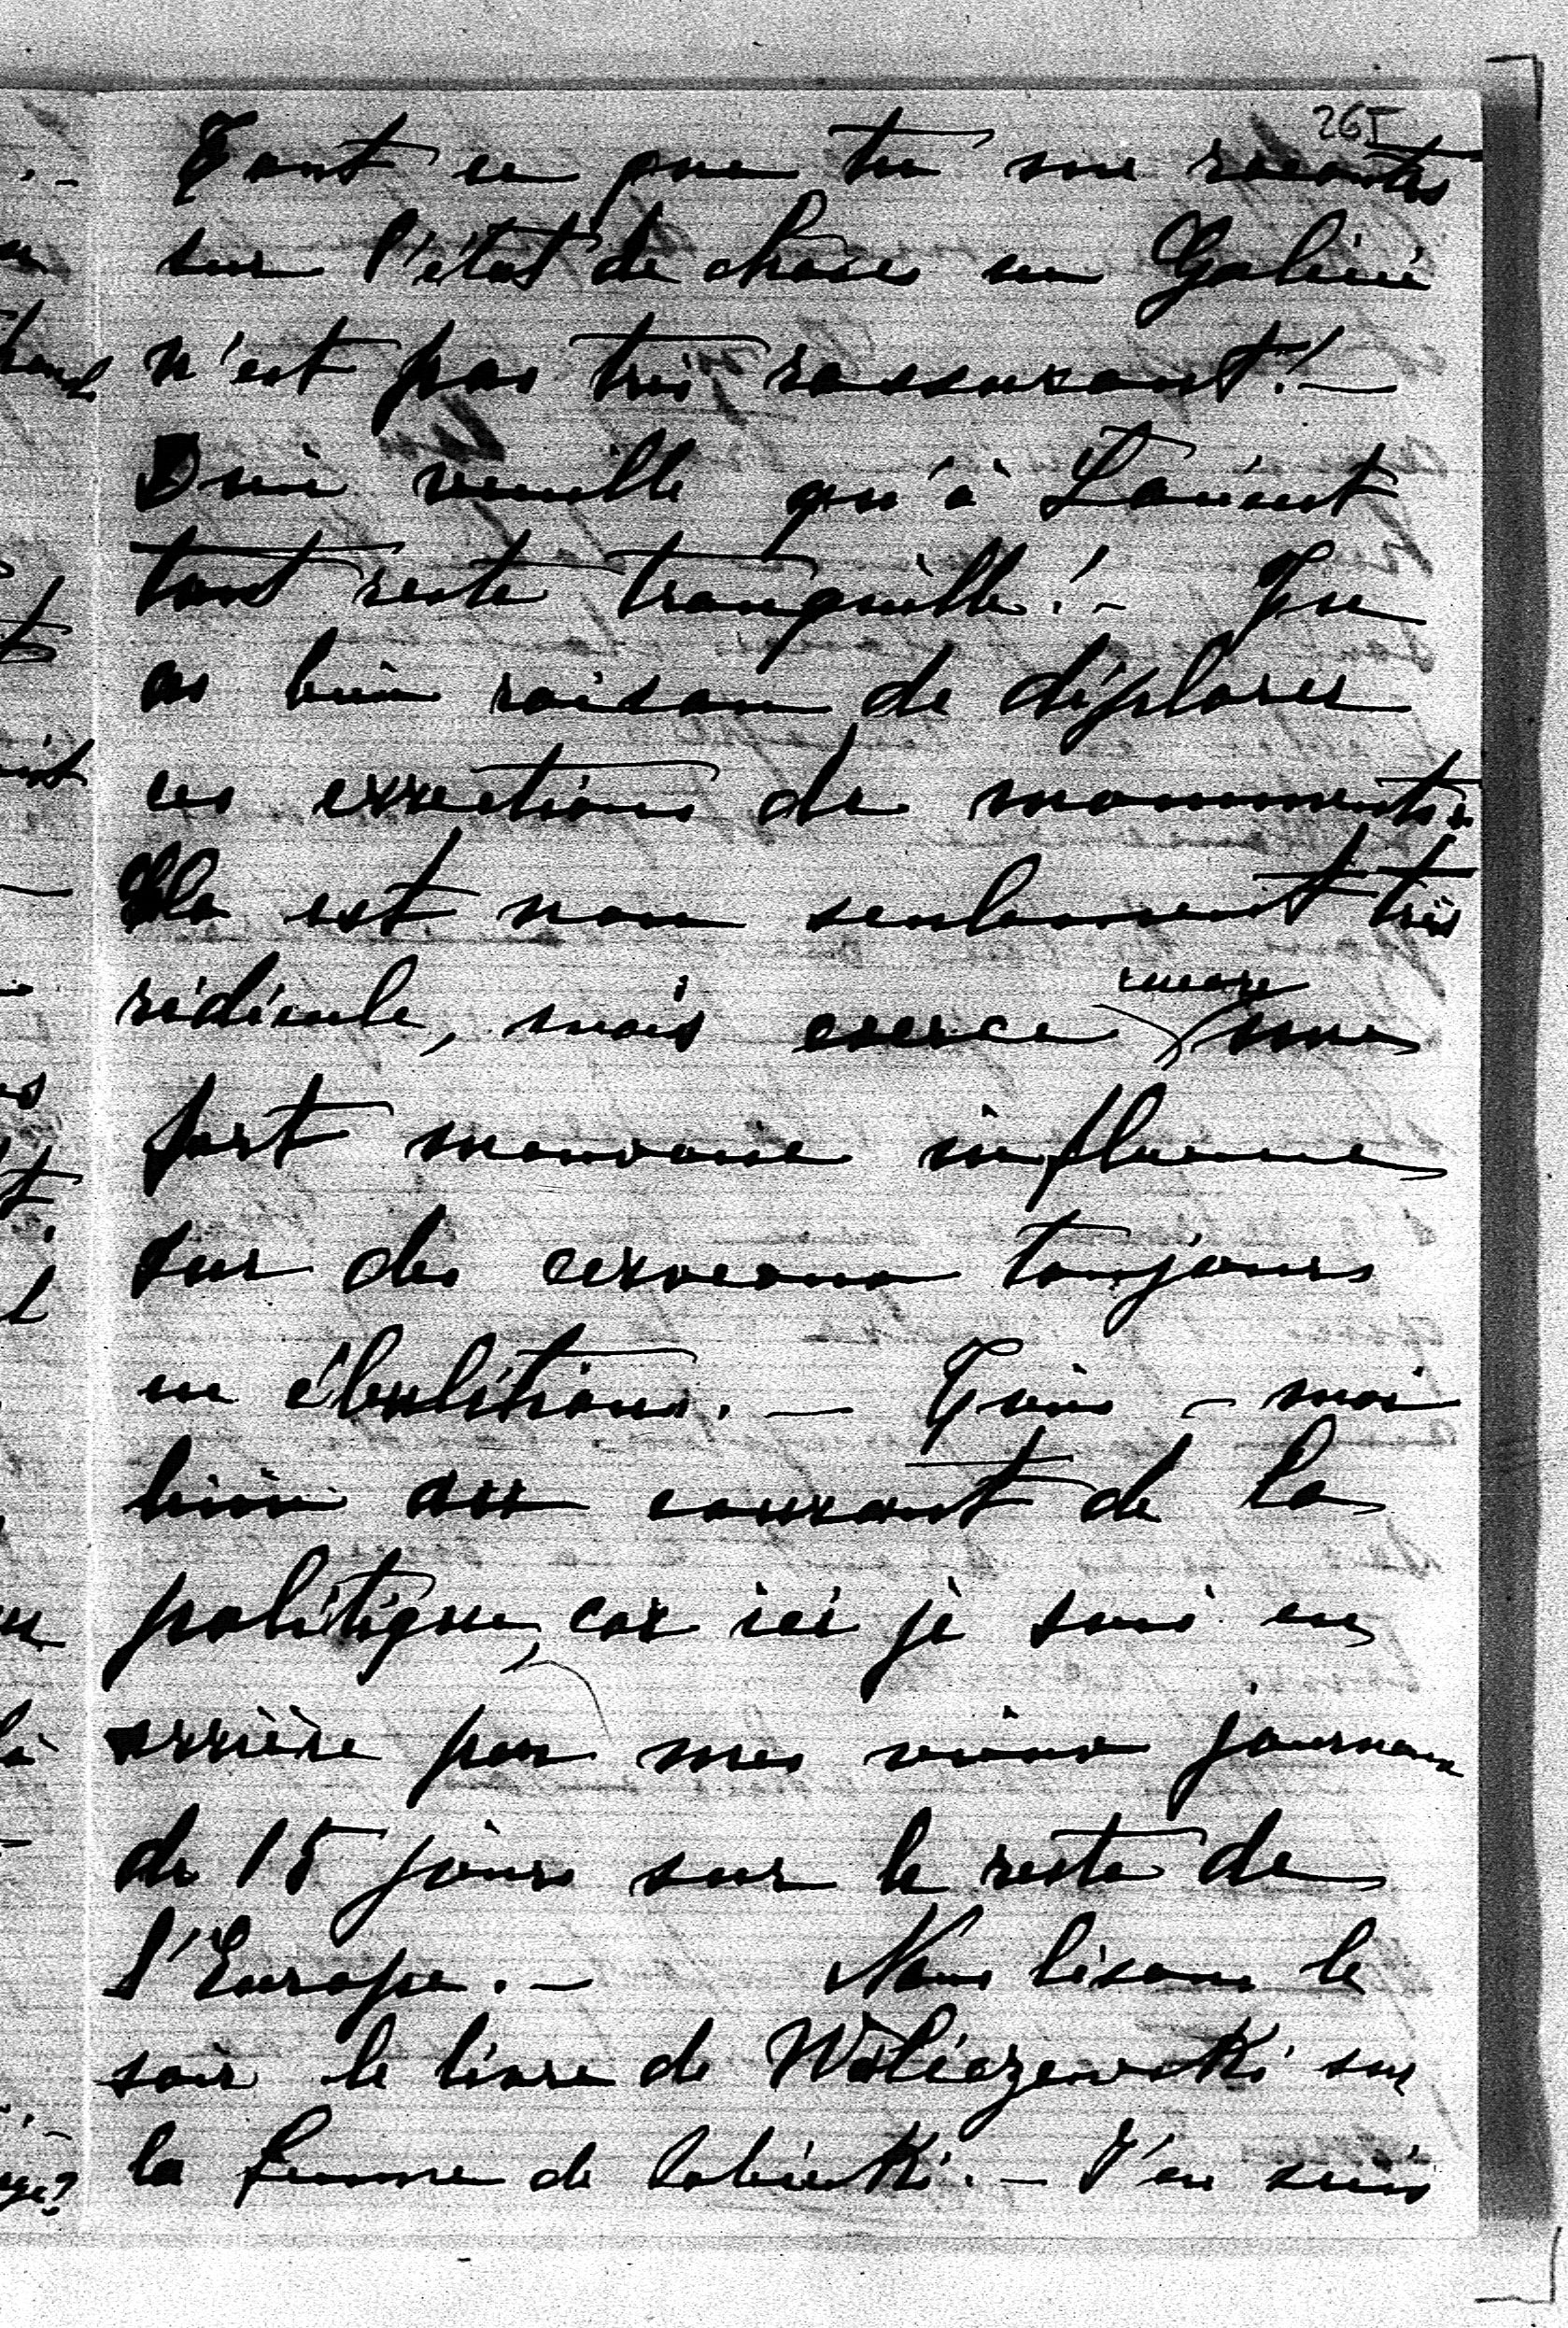 265
Tout ce que tu me racontes
sur l'état de choses en Galicie
n'est pas très rassurant! —
Dieu veuille qu'à Łańcut
tout reste tranquille! - Tu
as bien raison de déplorer
ces errections de monuments.
Cela est non seulement très
ridicule, mais exerce encore une
fort mauvaise influence
sur des cerveaux toujours
en ébulitions. — Tiens - moi
bien au courant de la
politique, car ici je suis en
arrière par mes vieux journaux
de 15 jours sur le reste de
l'Europe. — Nous lisons le
soir le livre de Waliczewski sur
la femme de Sobieski. — J'en suis